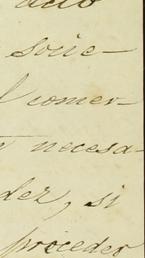 acto
socie-
l comer-
necesa-
dez, si
proceder